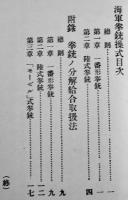 海軍拳銃操式目次
總則 一
第一章 一番形拳銃 一
第二章 陸式拳銃 四
附錄 拳銃ノ分解給合取扱法
總則 九
第一章 一番形拳銃 九
第二章 陸式拳銃
第三章 「モーゼル」式拳銃 一七
(終)